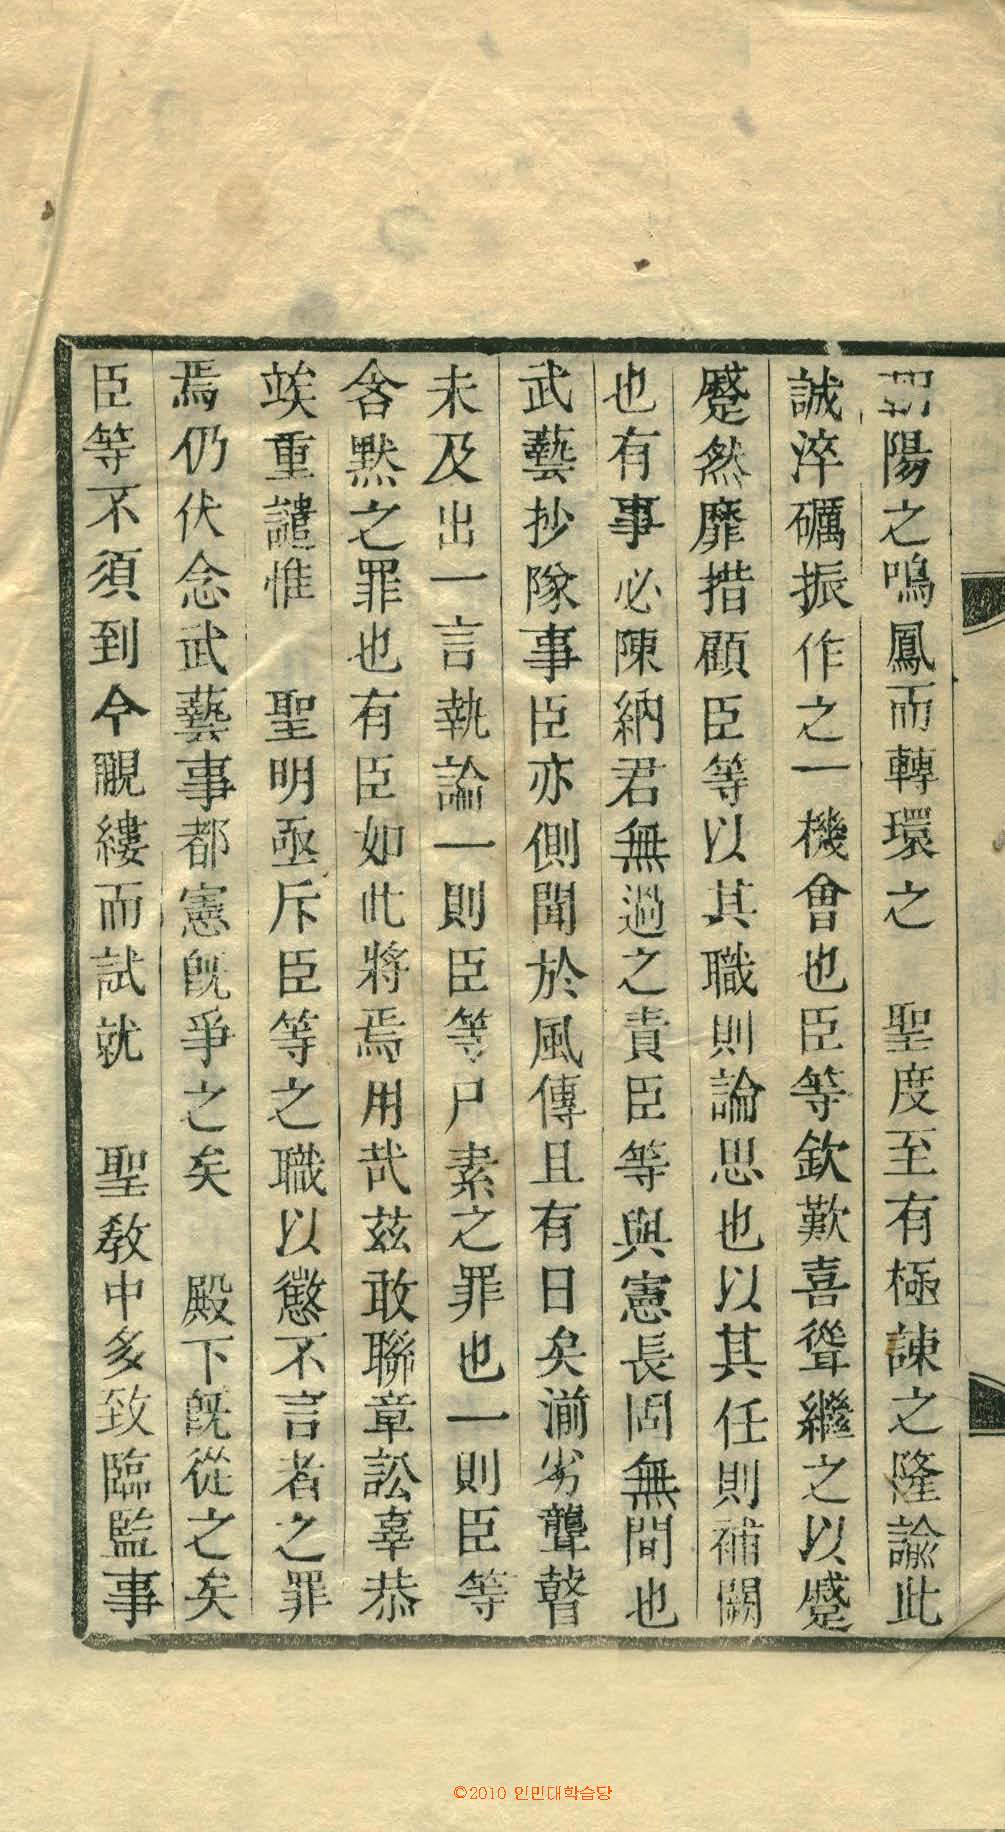 朝陽之鳴鳳而轉環之　聖度至有極諫之隆諭此
誠淬礪振作之一機會也臣等欽歎喜聳繼之以蹙
蹙然靡措顧臣等以其職則論思也以其任則補闕
也有事必陳納君無過之責臣等與憲長固無間也
武藝抄隊事臣亦側聞於風傳且有日矣湔劣聾瞽
未及出一言執論一則臣等尸素之罪也一則臣等
含默之罪也有臣如此將焉用哉茲敢聯章訟辜恭
竢重譴惟　聖明亟斥臣等之職以懲不言者之罪
焉仍伏念武藝事都憲旣爭之矣　殿下旣從之矣
臣等不須到今覼縷而試就　聖敎中多致臨監事
©2010 인민대학습당